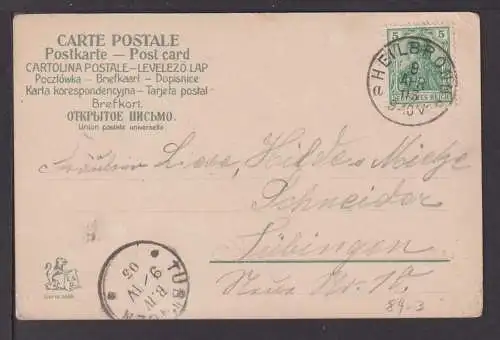 CARTE POSTALE
Postkarte — Post card
CARTOLINA POSTALE–LEVELEZŐ LAP
Pocztówka – Brefkaart – Dopisnice
Karta korespondencyjna – Tarjeta postal
Brefkort.
ОТКРЫТОЕ ПИСЬМО.
Union postale universelle
5 5
HEILBRONN
8
DEUTSCHES REICH
Fräulein Hilde u. Mietze
Schneider
Tübingen
TÜBINGEN
9 IV
05
8-9 N
84-3